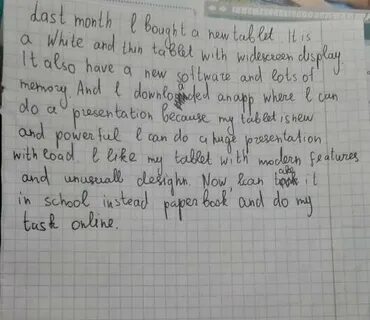 Last month I bought a new tablet It is
a White and thin tablet with widescreen display.
It also have a new software and lots of
memory And I downloaded an app where I can
do a presentation because my tablet is new
and powerful I can do a huge presentation
with load. I like my tablet with modern features
and unusuall desighn. Now I can it
in school instead paperbook and do my
task online.